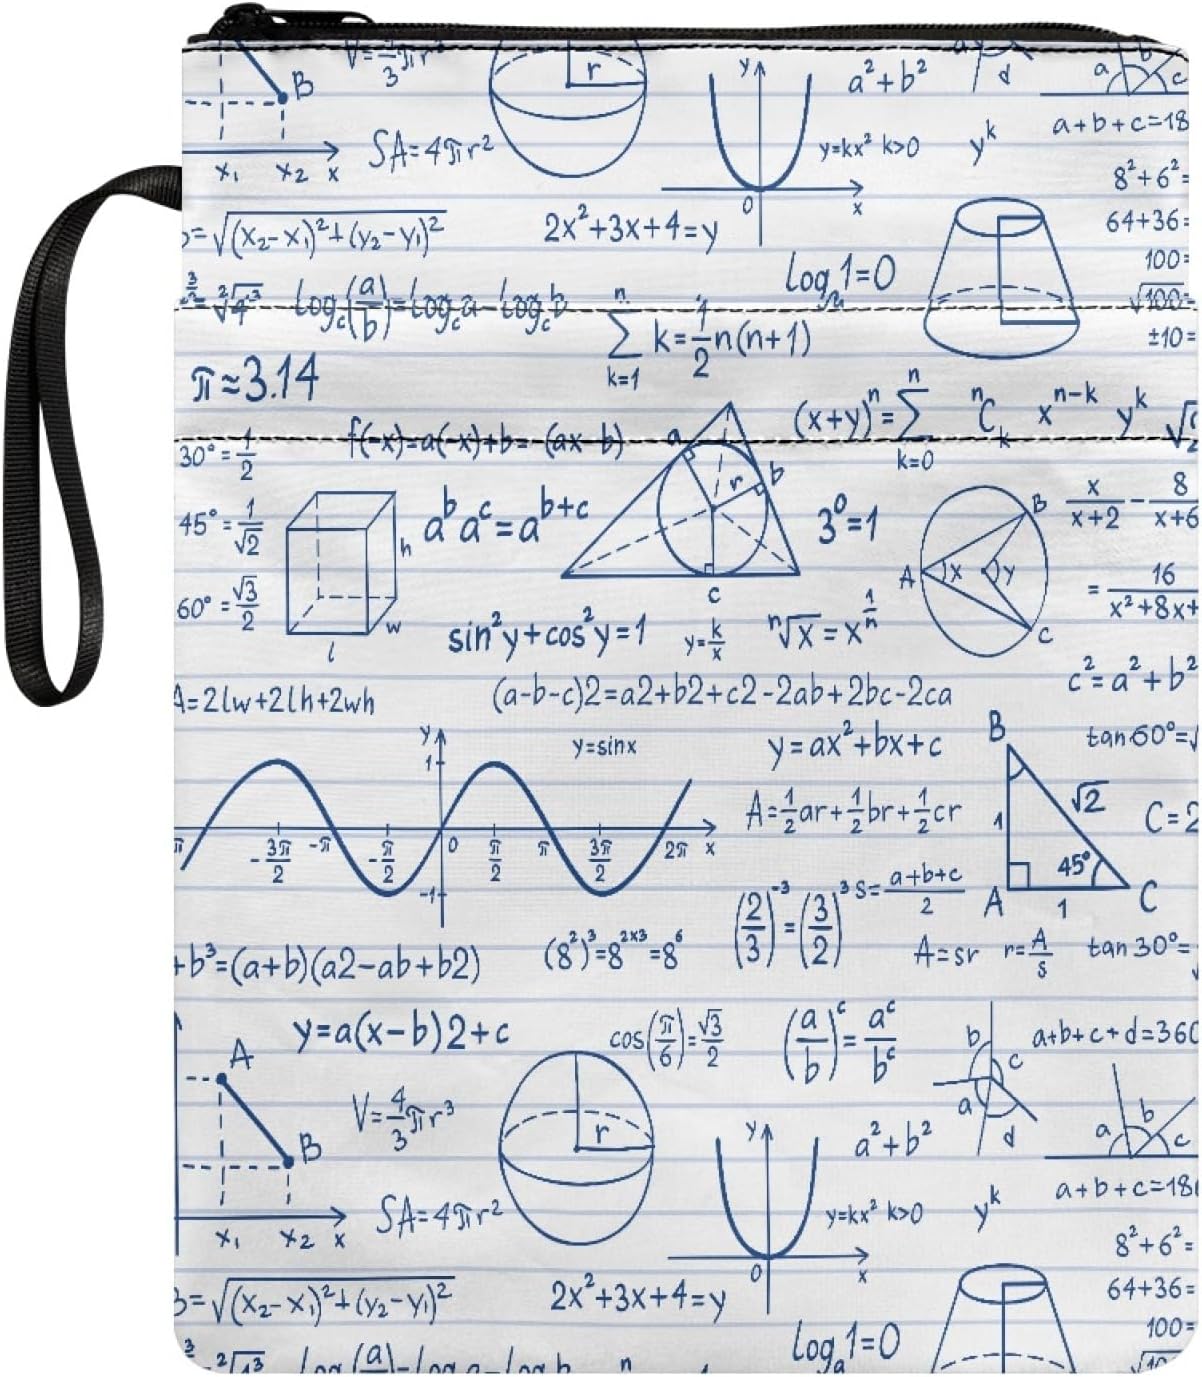 V=4/3πr³
B
r
y
a²+b²
d
a b c
SA=4πr²
y=kx² k>0
y^k
a+b+c=18
x₁ x₂ x
0
x
8²+6²=
=√(x₂-x₁)²+(y₂-y₁)²
2x²+3x+4=y
64+36=
logₐ1=0
100=
log_c(a/b)=log_c a-log_c b
√100=
∑_{k=1}^{n} k=1/2n(n+1)
±10=
π≈3.14
(x+y)^n=∑_{k=0}^{n} ^nC_k x^{n-k} y^k
30°=1/2
f(-x)=a(-x)+b=-(ax-b)
a b r c
45°=1/√2
h
a^b a^c=a^{b+c}
3⁰=1
A B C x y
x/x+2 - 8/x+6
60°=√3/2
w
l
sin²y+cos²y=1
y=k/x
ⁿ√x=x^{1/n}
=16/x²+8x+
A=2lw+2lh+2wh
(a-b-c)2=a2+b2+c2-2ab+2bc-2ca
c²=a²+b²
y
1
y=sinx
y=ax²+bx+c
B
tan60°=√
A=1/2ar+1/2br+1/2cr
1
√2
C=2
π -3π/2 -π -π/2 0 π/2 π 3π/2 2π x
-1
45°
A 1 C
(2/3)^{-3}=(3/2)^3
s=a+b+c/2
+b³=(a+b)(a2-ab+b2)
(8²)³=8^{2x3}=8⁶
A=sr
r=A/s
tan30°=
y=a(x-b)2+c
cos(π/6)=√3/2
(a/b)^c=a^c/b^c
b c a d
a+b+c+d=360
A
V=4/3πr³
B
r
y
a²+b²
a b c
SA=4πr²
y=kx² k>0
y^k
a+b+c=180
x₁ x₂ x
0
x
8²+6²=
=√(x₂-x₁)²+(y₂-y₁)²
2x²+3x+4=y
64+36=
logₐ1=0
100=
n